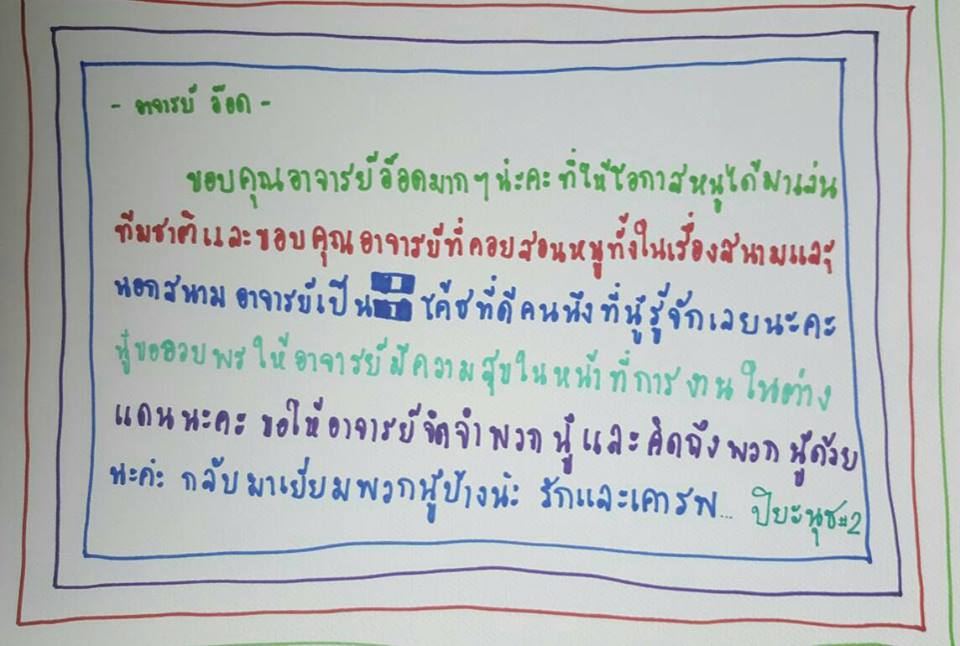 - อาจารย์ อ๊อด -
ขอบคุณอาจารย์อ๊อดมากๆน่ะคะที่ให้โอกาสหนูได้มาเล่น
ทีมชาติและขอบคุณอาจารย์ที่คอยสอนหนูทั้งในเรื่องสนามและ
นอกสนาม อาจารย์เป็น โค้ชที่ดีคนนึงที่นู๋รู้จักเลยนะคะ
นู๋ขออวยพรให้อาจารย์มีความสุขในหน้าที่การงานในต่าง
แดนนะคะ ขอให้อาจารย์จดจำพวกนู๋และคิดถึงพวกนู๋ด้วย
นะค่ะ กลับมาเยี่ยมพวกนู๋บ้างน้ะ รักและเคารพ... ปิยะนุช#2